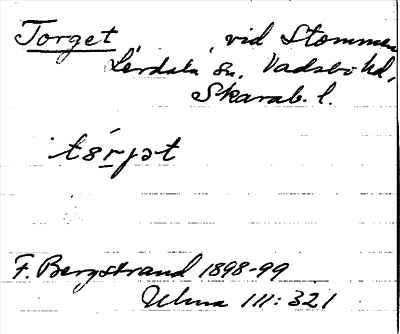 Torget, vid Stommen
Lerdala sn, Vadsbo hd,
Skarab. l.
tɜrjət
F. Bergstrand 1898-99
Ulma 111:321